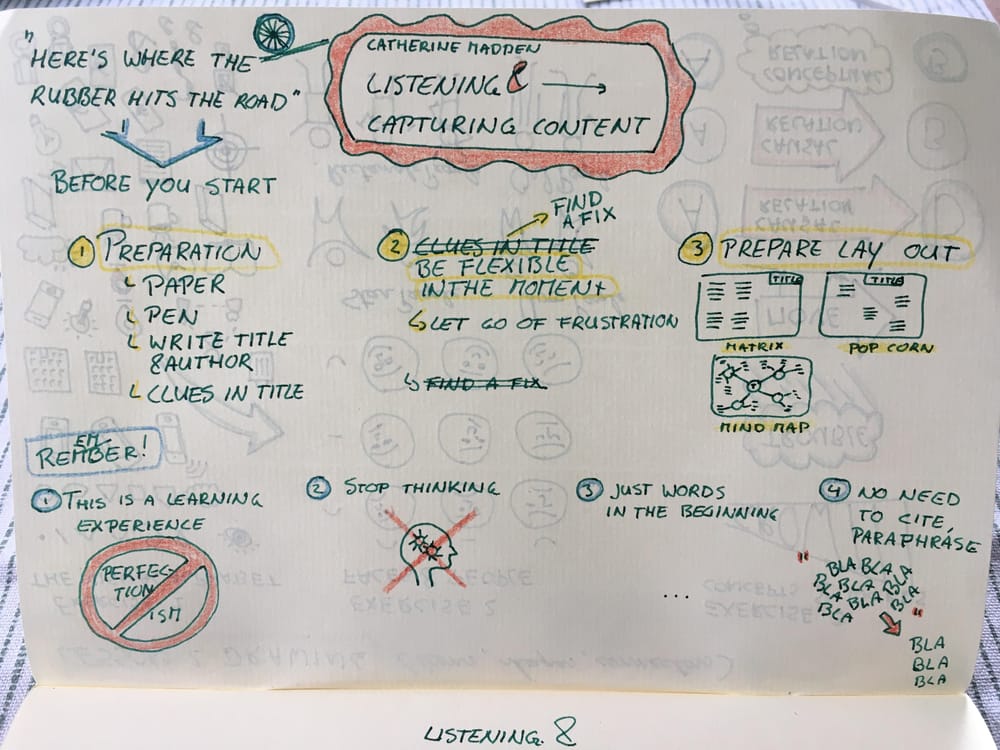 "HERE'S WHERE THE
RUBBER HITS THE ROAD"
CATHERINE MADDEN
LISTENING & →
CAPTURING CONTENT
BEFORE YOU START
1 PREPARATION
PAPER
PEN
WRITE TITLE
& AUTHOR
CLUES IN TITLE
FIND
A FIX
2 CLUES IN TITLE
BE FLEXIBLE
IN THE MOMENT
LET GO OF FRUSTRATION
FIND A FIX
3 PREPARE LAY OUT
TITLE
MATRIX
TITLE
POP CORN
MIND MAP
EM
REMBER!
1 THIS IS A LEARNING
EXPERIENCE
PERFEC-
TION
ISM
2 STOP THINKING
3 JUST WORDS
IN THE BEGINNING
...
4 NO NEED
TO CITE,
PARAPHRASE
"BLA BLA BLA
BLA BLA BLA
BLA BLA BLA
BLA"
BLA
BLA
BLA
LISTENING &